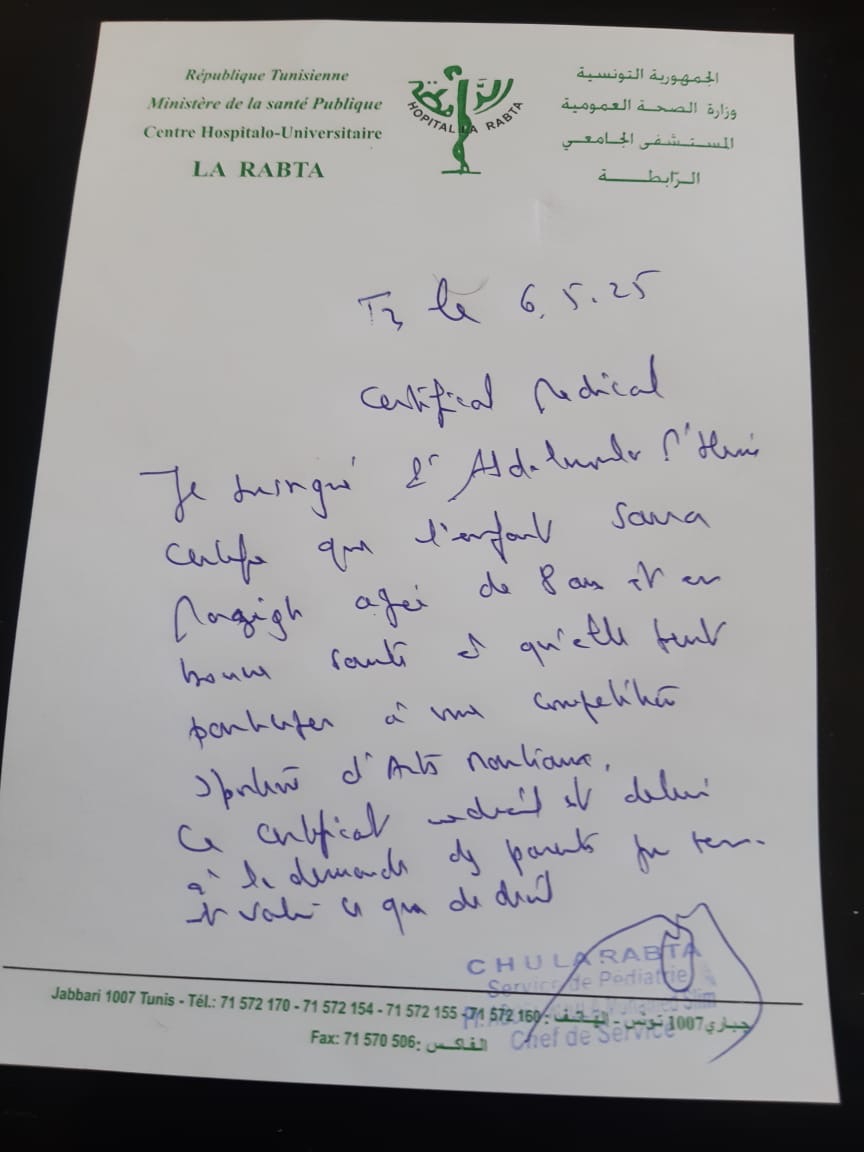 République Tunisienne
Ministère de la santé Publique
Centre Hospitalo-Universitaire
LA RABTA
الرابطة
HOPITAL LA RABTA
الجمهورية التونسية
وزارة الصحة العمومية
المستشفى الجامعي
الرّابطة
le 6.5.25
Certificat Medical
Je soussigné
certifie que l'enfant Sarra
Mazigh agée de 8 ans est en
bonne santé et qu'elle peut
participer à une competition
sportive d'Arts Martiaux.
Ce certificat medical est delivré
à la demande des parents pour
et valoir ce que de droit
CHU LA RABTA
Service de Pédiatrie
Chef de Service
Jabbari 1007 Tunis - Tél.: 71 572 170 - 71 572 154 - 71 572 155 - 71 572 160 : الهـاتـف - جبـاري 1007 تونس
Fax: 71 570 506 : الفـاكـس